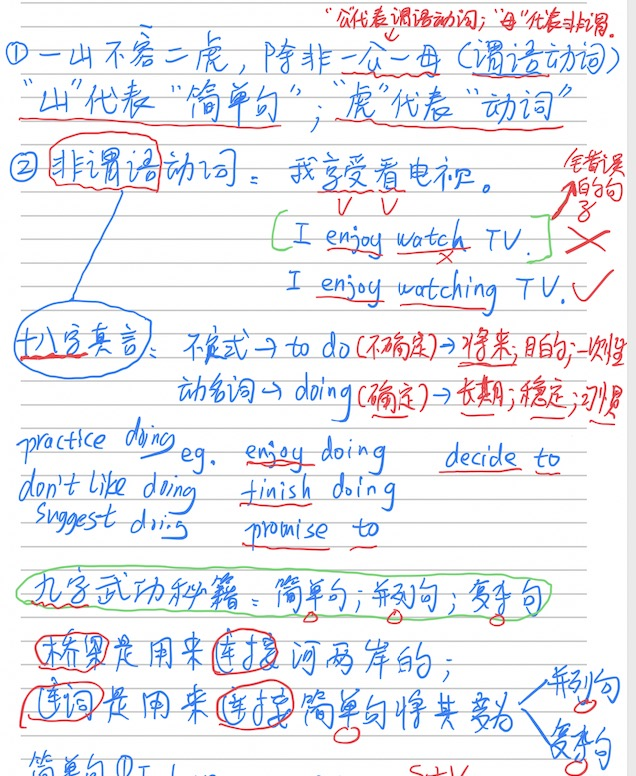 "公"代表谓语动词；"母"代表非谓。
① 一山不容二虎，除非一公一母（谓语动词）
"山"代表"简单句"；"虎"代表"动词"
② 非谓语动词：我享受看电视。
全错误的句子
I enjoy watch TV.
I enjoy watching TV.
十八字真言：不定式→to do(不确定)→将来；目的；一次性
动名词→doing(确定)→长期；稳定；习惯
practice doing eg. enjoy doing decide to
don't like doing finish doing
suggest doing promise to
九字武功秘籍：简单句；并列句；复杂句
桥梁是用来连接河两岸的；
连词是用来连接简单句将其变为 并列句
复杂句
简单句①I
S+V